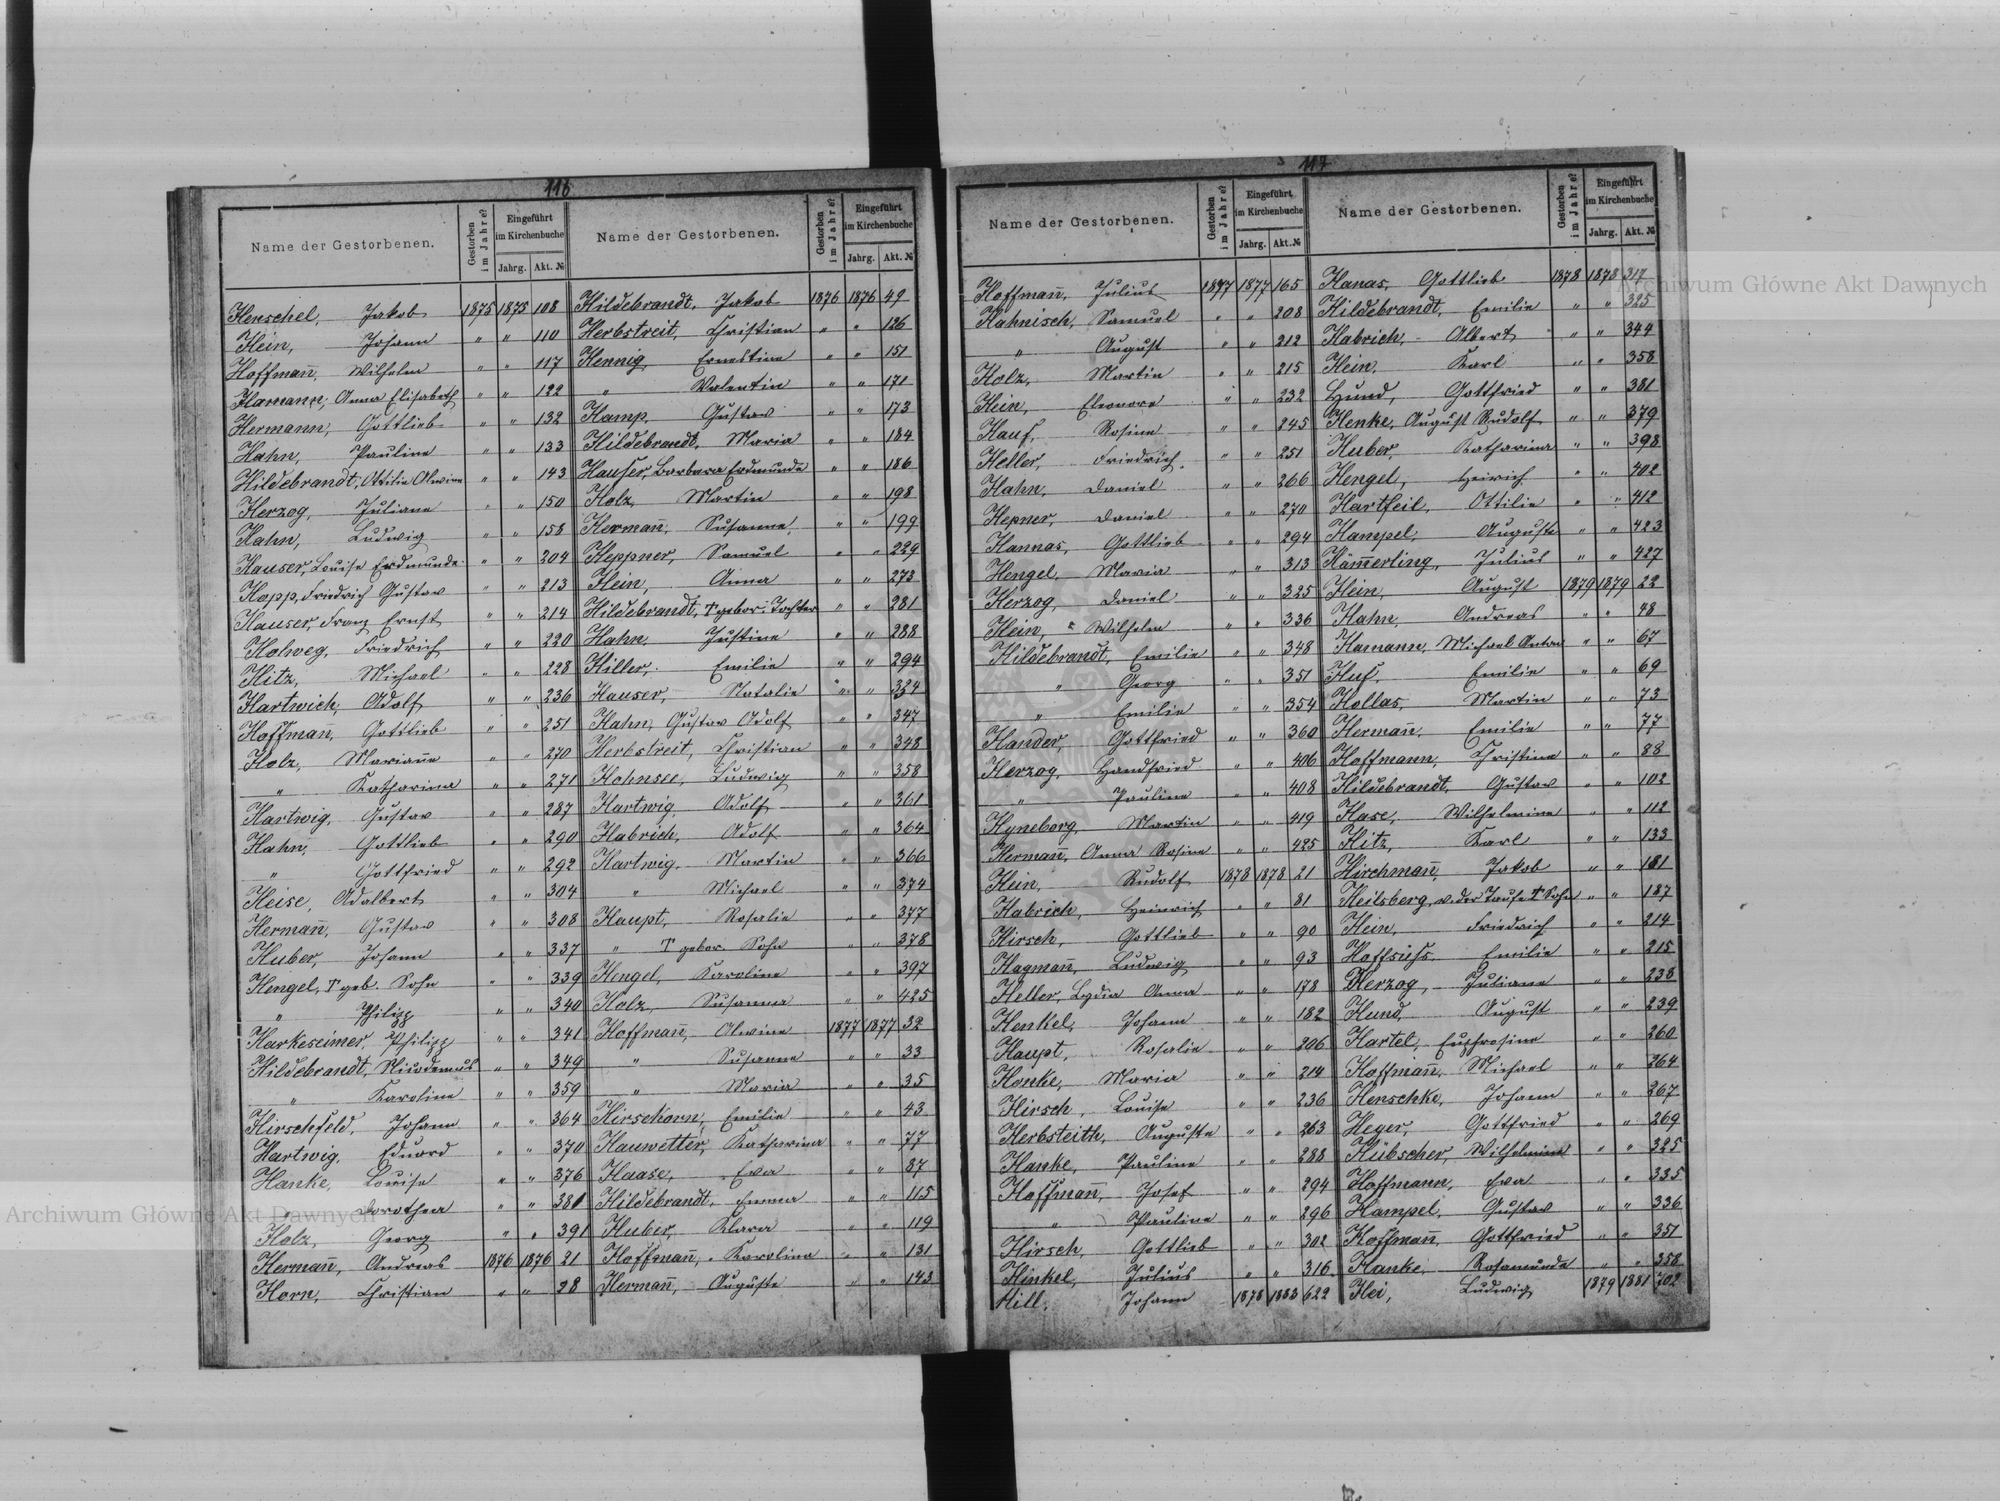 116
Name der Gestorbenen. Gestorben im Jahre? Eingeführt im Kirchenbuche Jahrg. Akt. №
Henschel, Jakob 1875 1875 108
Hein, Johann " " 110
Hoffmañ, Wilhelm " " 117
Hamann, Anna Elisabeth " " 122
Hermann, Gottlieb " " 132
Hahn, Pauline " " 133
Hildebrandt, Ottilie Alwine " " 143
Herzog, Juliane " " 150
Hahn, Ludwig " " 158
Hauser, Louise Erdmunde " " 204
Hopp, Friedrich Gustav " " 213
Hauser, Franz Ernst " " 214
Holweg, Friedrich " " 220
Hitz, Michael " " 228
Hartwich, Adolf " " 236
Hoffman, Gottlieb " " 251
Holz, Mariañe " " 270
" Katharina " " 271
Hartwig, Gustav " " 287
Hahn, Gottlieb " " 290
" Gottfried " " 292
Heise, Adalbert " " 304
Hermañ, Gustav " " 308
Huber, Johann " " 337
Hengel, † geb. Sohn " " 339
" Philipp " " 340
Harkeseimer, Philipp " " 341
Hildebrandt, Nicodemus " " 349
" Karoline " " 359
Hirschfeld, Johann " " 364
Hartwig, Eduard " " 370
Hanke, Louise " " 376
" Dorothea " " 381
Holz, Georg " " 391
Hermañ, Andreas 1876 1876 21
Horn, Christian " " 28
Name der Gestorbenen. Gestorben im Jahre? Eingeführt im Kirchenbuche Jahrg. Akt. №
Hildebrandt, Jakob 1876 1876 49
Herbstreit, Christian " " 126
Hennig, Ernestine " " 151
" Valentin " " 171
Hamp, Gustav " " 173
Hildebrandt, Maria " " 184
Hauser, Barbara Erdmunde " " 186
Holz, Martin " " 198
Hermañ, Susanne " " 199
Heppner, Samuel " " 229
Hein, Anna " " 273
Hildebrandt, † gebor: Tochter " " 281
Hahn, Justine " " 288
Hiller, Emilie " " 294
Hauser, Natalie " " 334
Hahn, Gustav Adolf " " 347
Herbstreit, Christian " " 348
Hohnsee, Ludwig " " 358
Hartwig, Adolf " " 361
Habrich, Adolf " " 364
Hartwig, Martin " " 366
" Michael " " 374
Haupt, Rosalie " " 377
" † gebor. Sohn " " 378
Hengel, Karoline " " 397
Holz, Susanna " " 425
Hoffmañ, Alwine 1877 1877 32
" Susanne " " 33
" Maria " " 35
Hirschorn, Emilie " " 43
Hauwetter, Katharina " " 77
Haase, Eva " " 87
Hildebrandt, Emma " " 115
Huber, Klara " " 119
Hoffmañ, Karolina " " 131
Hermañ, Auguste " " 143
117
Name der Gestorbenen. Gestorben im Jahre? Eingeführt im Kirchenbuche Jahrg. Akt. №
Hoffmañ, Julius 1877 1877 165
Hahnisch, Samuel " " 208
" August " " 212
Holz, Martin " " 215
Hein, Eleonore " " 232
Hauf, Rosine " " 245
Heller, Friedrich " " 251
Hahn, Daniel " " 266
Hepner, Daniel " " 270
Hannas, Gottlieb " " 294
Hengel, Maria " " 313
Herzog, Daniel " " 325
Hein, Wilhelm " " 336
Hildebrandt, Emilie " " 348
" Georg " " 351
" Emilie " " 354
Hander, Gottfried " " 360
Herzog, Handfried " " 406
" Pauline " " 408
Hyneborg, Martin " " 419
Hermañ, Anna Rosine " " 425
Hein, Rudolf 1878 1878 21
Habrich, Heinrich " " 81
Hirsch, Gottlieb " " 90
Hagmañ, Ludwig " " 93
Heller, Lydia Anna " " 178
Henkel, Johann " " 182
Haupt, Rosalie " " 206
Honke, Maria " " 214
Hirsch, Louise " " 236
Herbsteith, Auguste " " 263
Hanke, Pauline " " 288
Hoffmañ, Josef " " 294
" Pauline " " 296
Hirsch, Gottlieb " " 302
Hinkel, Julius " " 316
Hill, Johann 1878 1883 622
Name der Gestorbenen. Gestorben im Jahre? Eingeführt im Kirchenbuche Jahrg. Akt. №
Hanas, Gottlieb 1878 1878 317
Hildebrandt, Emilie " " 325
Habrich, Albert " " 344
Hein, Karl " " 358
Hund, Gottfried " " 381
Henke, August Rudolf " " 379
Huber, Katharina " " 398
Hengel, Heirich " " 402
Hartfeil, Ottilie " " 412
Hampel, Auguste " " 423
Häm̃erling, Julius " " 427
Hein, August 1879 1879 22
Hahn, Andreas " " 48
Hamann, Michael Anton " " 67
Huf, Emilie " " 69
Hollas, Martin " " 73
Hermañ, Emilie " " 77
Hoffmann, Christine " " 88
Hildebrandt, Gustav " " 102
Hase, Wilhelmine " " 112
Hitz, Karl " " 133
Hirchmañ, Jakob " " 181
Heilsberg, v. der Taufe † Sohn " " 187
Hein, Friedrich " " 214
Emilie " " 215
Herzog, Juliane " " 238
Hund, August " " 239
Hartel, Eufrosine " " 260
Hoffmañ, Michael " " 264
Henschke, Johann " " 267
Heyer, Gottfried " " 269
Hübscher, Wilhelmine " " 325
Hoffmann, Eva " " 335
Hampel, Gustav " " 336
Hoffmañ, Gottfried " " 351
Hanke, Rosamunde " " 358
Hei, Ludwig 1879 1881 702
Archiwum Główne Akt Dawnych
Archiwum Główne Akt Dawnych